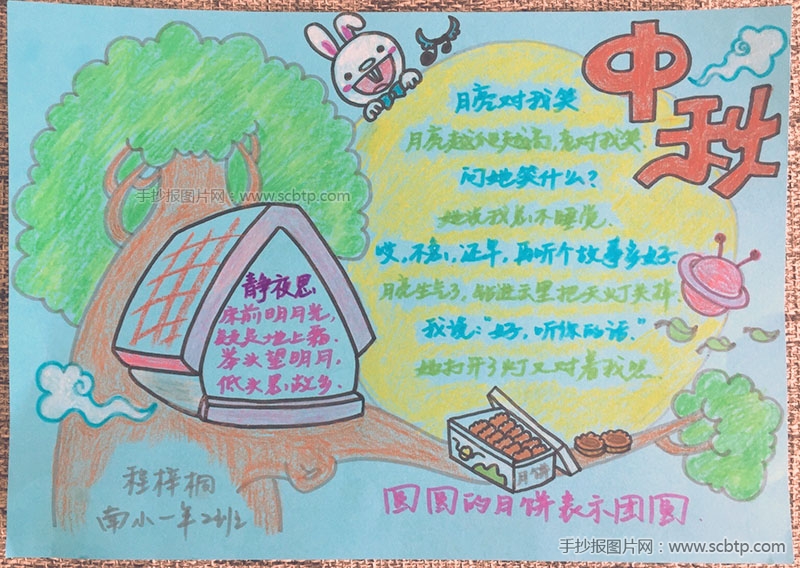 中秋
月亮对我笑
月亮越爬越高,老对我笑.
问她笑什么?
她说我总不睡觉.
哎,不急,还早,再听个故事多好.
月亮生气了,钻进云里把天灯关掉.
我说:“好,听你的话.”
她打开了灯又对着我照.
手抄报图片网:www.scbtp.com
静夜思
床前明月光,
疑是地上霜.
举头望明月,
低头思故乡.
月饼
圆圆的月饼表示团圆.
程梓桐
南小一年
手抄报图片网:www.scbtp.com